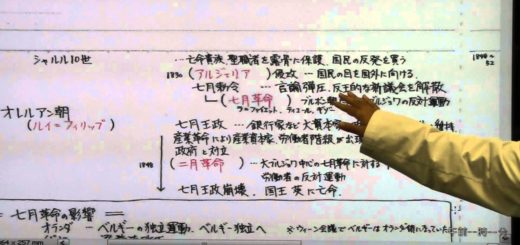 シャルル10世 …亡命貴族、聖職者を露骨に保護、国民の反発を買う
1830 (アルジェリア) 侵攻 … 国民の目を国外に向ける。
七月勅令 … 言論弾圧、反王的な新議会を解散
(七月革命) ブルボン
ブルジョワの反対運動
ラ=ファイエット、ティエール、ギゾー
オルレアン朝
(ルイ=フィリップ)
七月王政 … 銀行家など大資本 維持
産業革命により産業資本家、労働者階級が出現
政府と対立
1848 (二月革命) …大ブルジョワ中心の七月革命に対する
労働者の反対運動
七月王政崩壊、国王 英に亡命。
= 七月革命の影響 =
オランダ ― ベルギーの独立運動. ベルギー独立へ ※ウィーン会議でベルギーはオランダ領になっていた
1848
~52